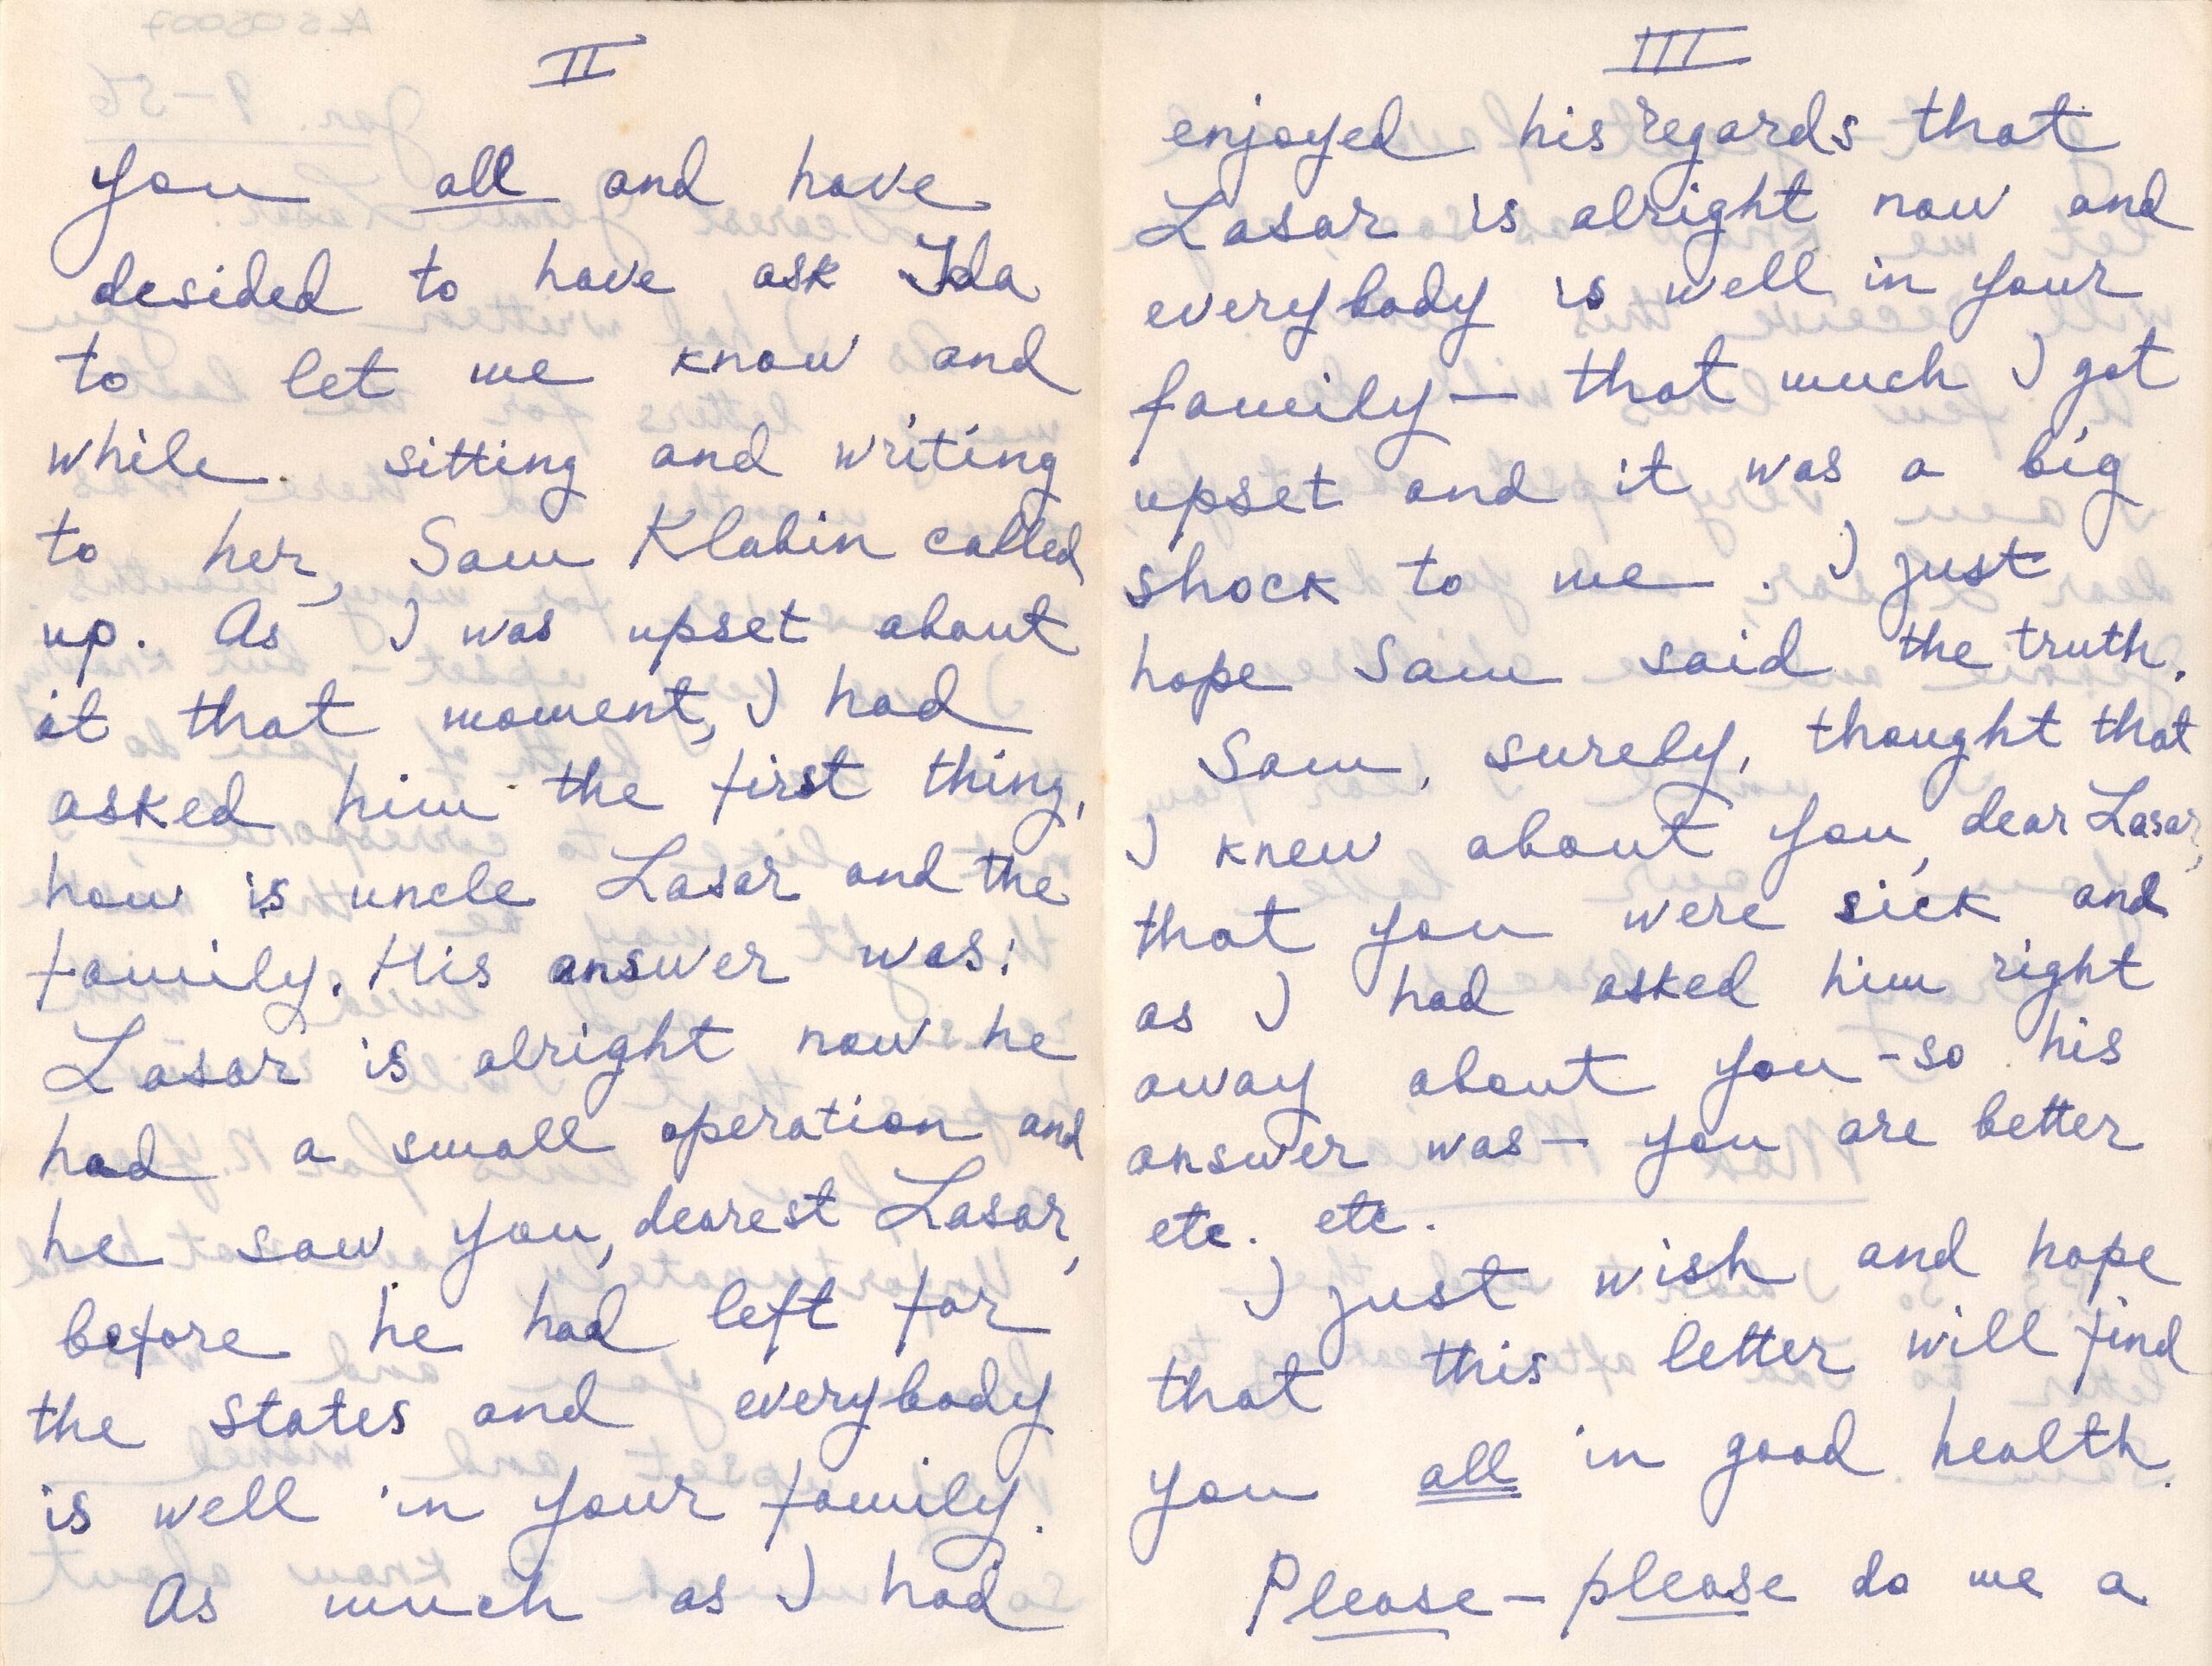 II
you all and have
desided to have ask Ida
to let me know and
while sitting and writing
to her, Sam Klabin called
up. As I was upset about
at that moment, I had
asked him the first thing,
how is uncle Lasar and the
family. His answer was:
Lasar is alright now he
had a small operation and
he saw you, dearest Lasar,
before he had left for
the States and everybody
is well in your family.
As much as I had
III
enjoyed his regards that
Lasar is alright now and
everybody is well in your
family — that much I got
upset and it was a big
shock to me. I just
hope Sam said the truth.
Sam, surely, thought that
I knew about you, dear Lasar,
that you were sick and
as I had asked him right
away about you - so his
answer was — you are better
etc. etc.
I just wish and hope
that this letter will find
you all in good health.
Please — please do me a